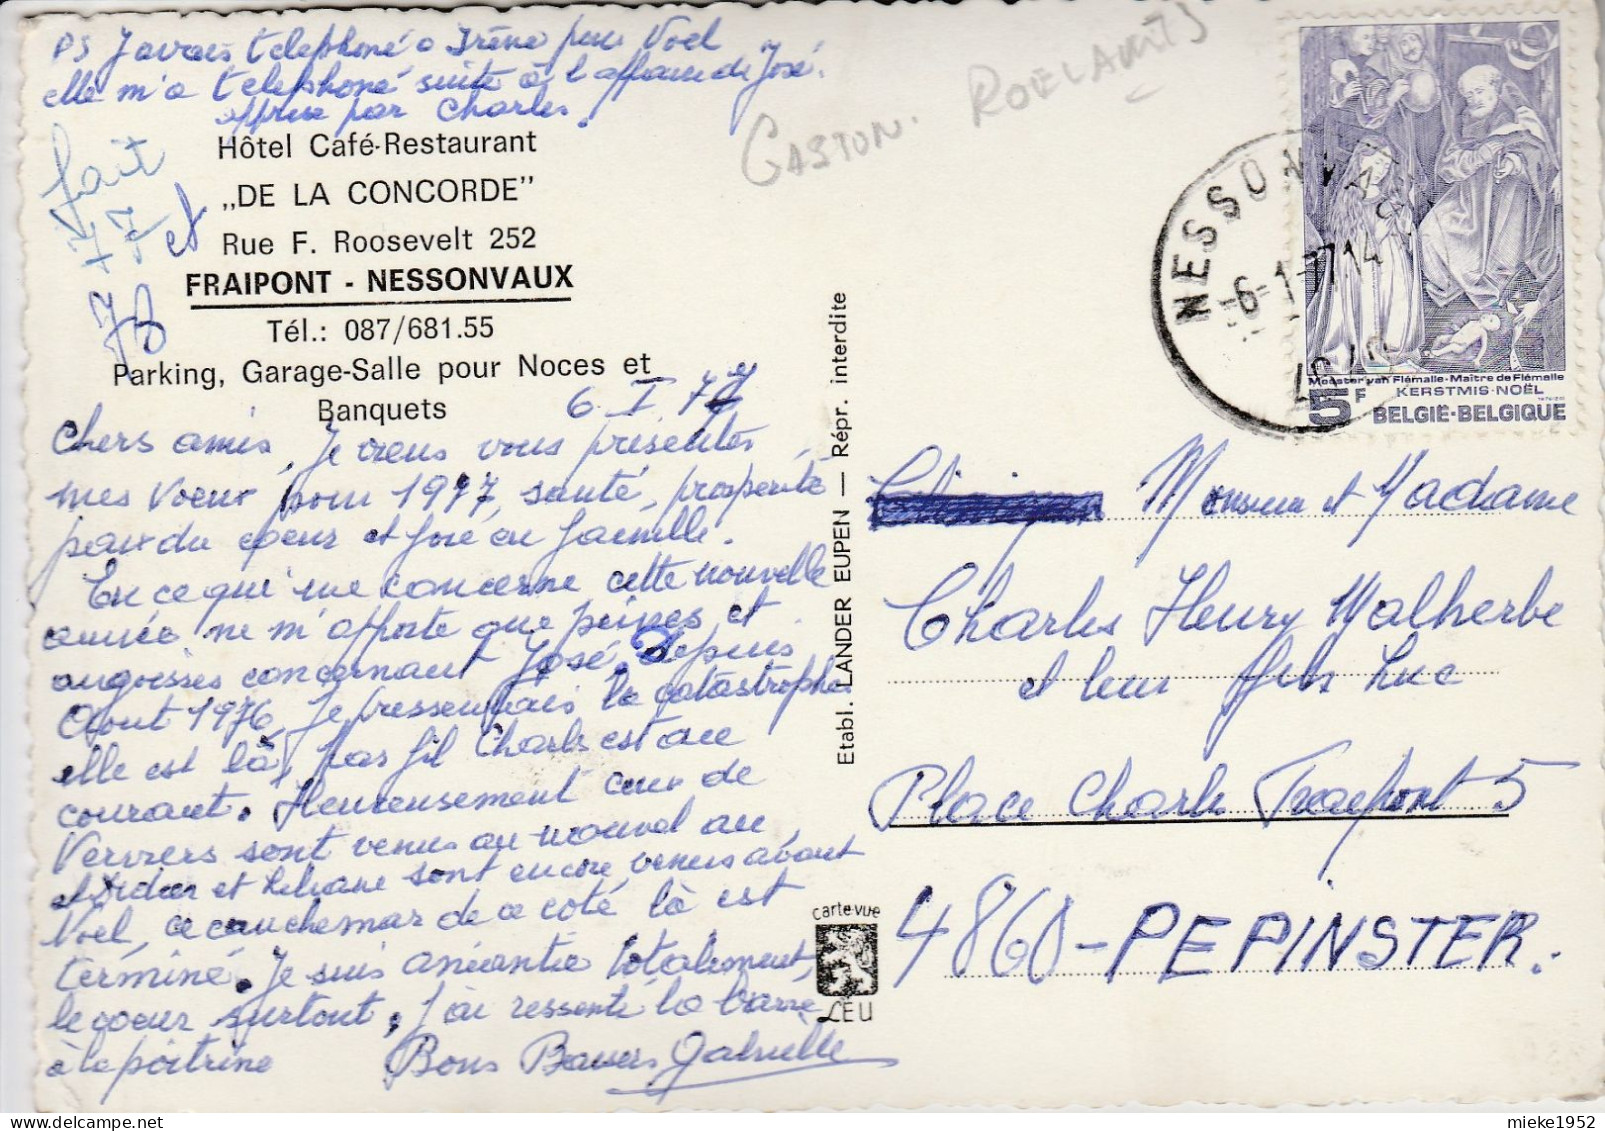 PS J'avais telephoné à Irène pour Noel
elle m'a telephoné suite à l'affaire de José.
apprise par Charles.
fait
77
et
78
Hôtel Café-Restaurant
„DE LA CONCORDE”
Rue F. Roosevelt 252
FRAIPONT - NESSONVAUX
Tél.: 087/681.55
Parking, Garage-Salle pour Noces et
Banquets
6 I 77
Chers amis, Je viens vous présenter
mes voeux pour 1977, santé, prosperité
paix du coeur et joie en famille.
En ce qui me concerne cette nouvelle
année ne m'apporte que peines et
angoisses concernant José, depuis
Aout 1976, Je pressentais la catastrophe
elle est là, par fil Charles est au
courant. Heureusement ceux de
Verviers sont venus au nouvel an,
et Didier et Liliane sont encore venus avant
Noël, ce cauchemar de ce coté là est
terminé. Je suis anéantie totalement,
le coeur surtout, j'ai ressenti la barre
à la poitrine Bons Baisers Gabrielle
Etabl. LANDER EUPEN — Répr. interdite
carte-vue
LEU
GASTON. ROELANTS
NESSONVAUX
-6-1-77 14
Meester van Flémalle-Maître de Flémalle
KERSTMIS-NOËL
5F BELGIË-BELGIQUE
Monsieur et Madame
Charles Henry Malherbe
et leur fils Luc
Place Charles Fraipont 5
4860-PEPINSTER.
mieke1952